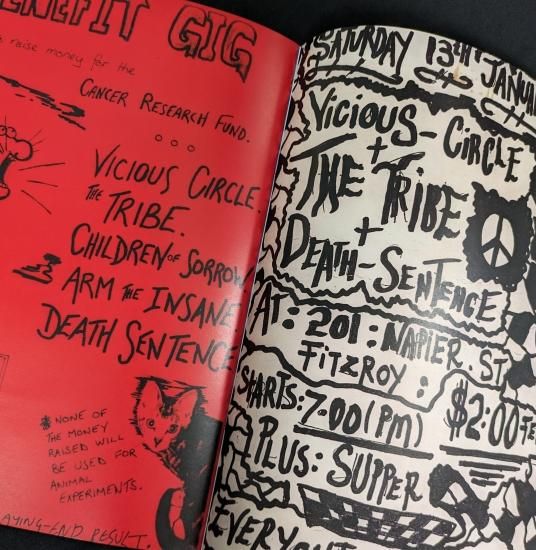 BENEFIT GIG
raise money for the
CANCER RESEARCH FUND.
VICIOUS CIRCLE.
THE TRIBE.
CHILDREN OF SORROW
ARM THE INSANE
DEATH SENTENCE
* NONE OF
THE MONEY
RAISED WILL
BE USED FOR
ANIMAL
EXPERIMENTS.
AYING-END RESULT.
SATURDAY 13TH JANUA
VICIOUS-CIRCLE
+
THE TRIBE
+
DEATH-SENTENCE
AT: 201: NAPIER. ST
FITZROY:
STARTS: 7.00 (PM) $2.00
PLUS: SUPPER
EVERYO